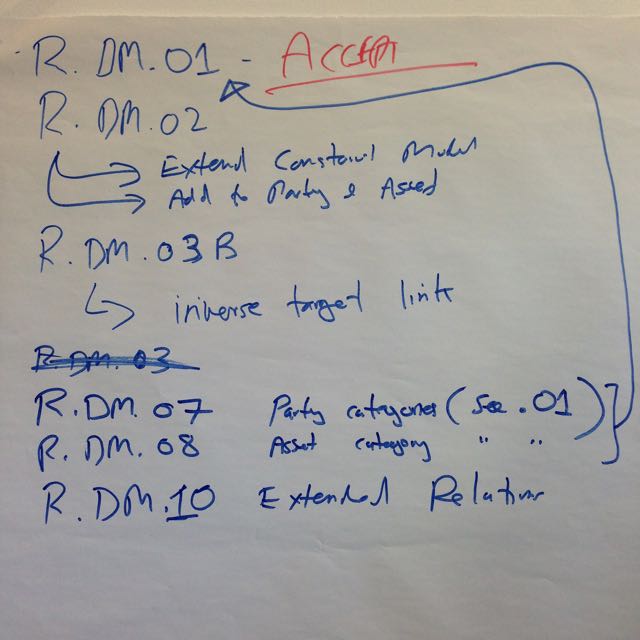 R. DM. 01 - ACCEPT
R. DM. 02
Extend Constraint Model
Add to Party & Asset
R. DM. 03 B
inverse target link
R. DM. 03
R. DM. 07 Party categories (see .01)
R. DM. 08 Asset category " "
R. DM. 10 Extended Relation